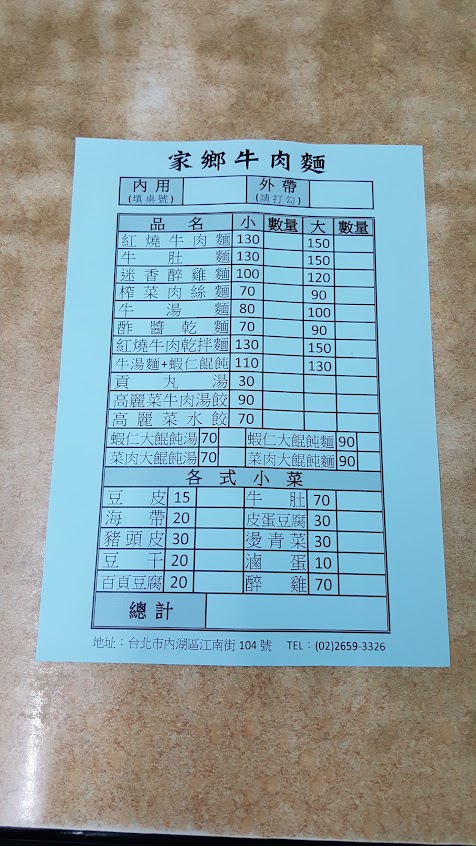 家鄉牛肉麵
內用 (填桌號) 外帶 (請打勾)
品名 小 數量 大 數量
紅燒牛肉麵 130 150
牛肚麵 130 150
迷香醉雞麵 100 120
榨菜肉絲麵 70 90
牛湯麵 80 100
酢醬乾麵 70 90
紅燒牛肉乾拌麵 130 150
牛湯麵+蝦仁餛飩 110 130
貢丸湯 30
高麗菜牛肉湯餃 90
高麗菜水餃 70
蝦仁大餛飩湯 70 蝦仁大餛飩麵 90
菜肉大餛飩湯 70 菜肉大餛飩麵 90
各式小菜
豆皮 15 牛肚 70
海帶 20 皮蛋豆腐 30
豬頭皮 30 燙青菜 30
豆干 20 滷蛋 10
百頁豆腐 20 醉雞 70
總計
地址：台北市內湖區江南街 104 號 TEL：(02)2659-3326